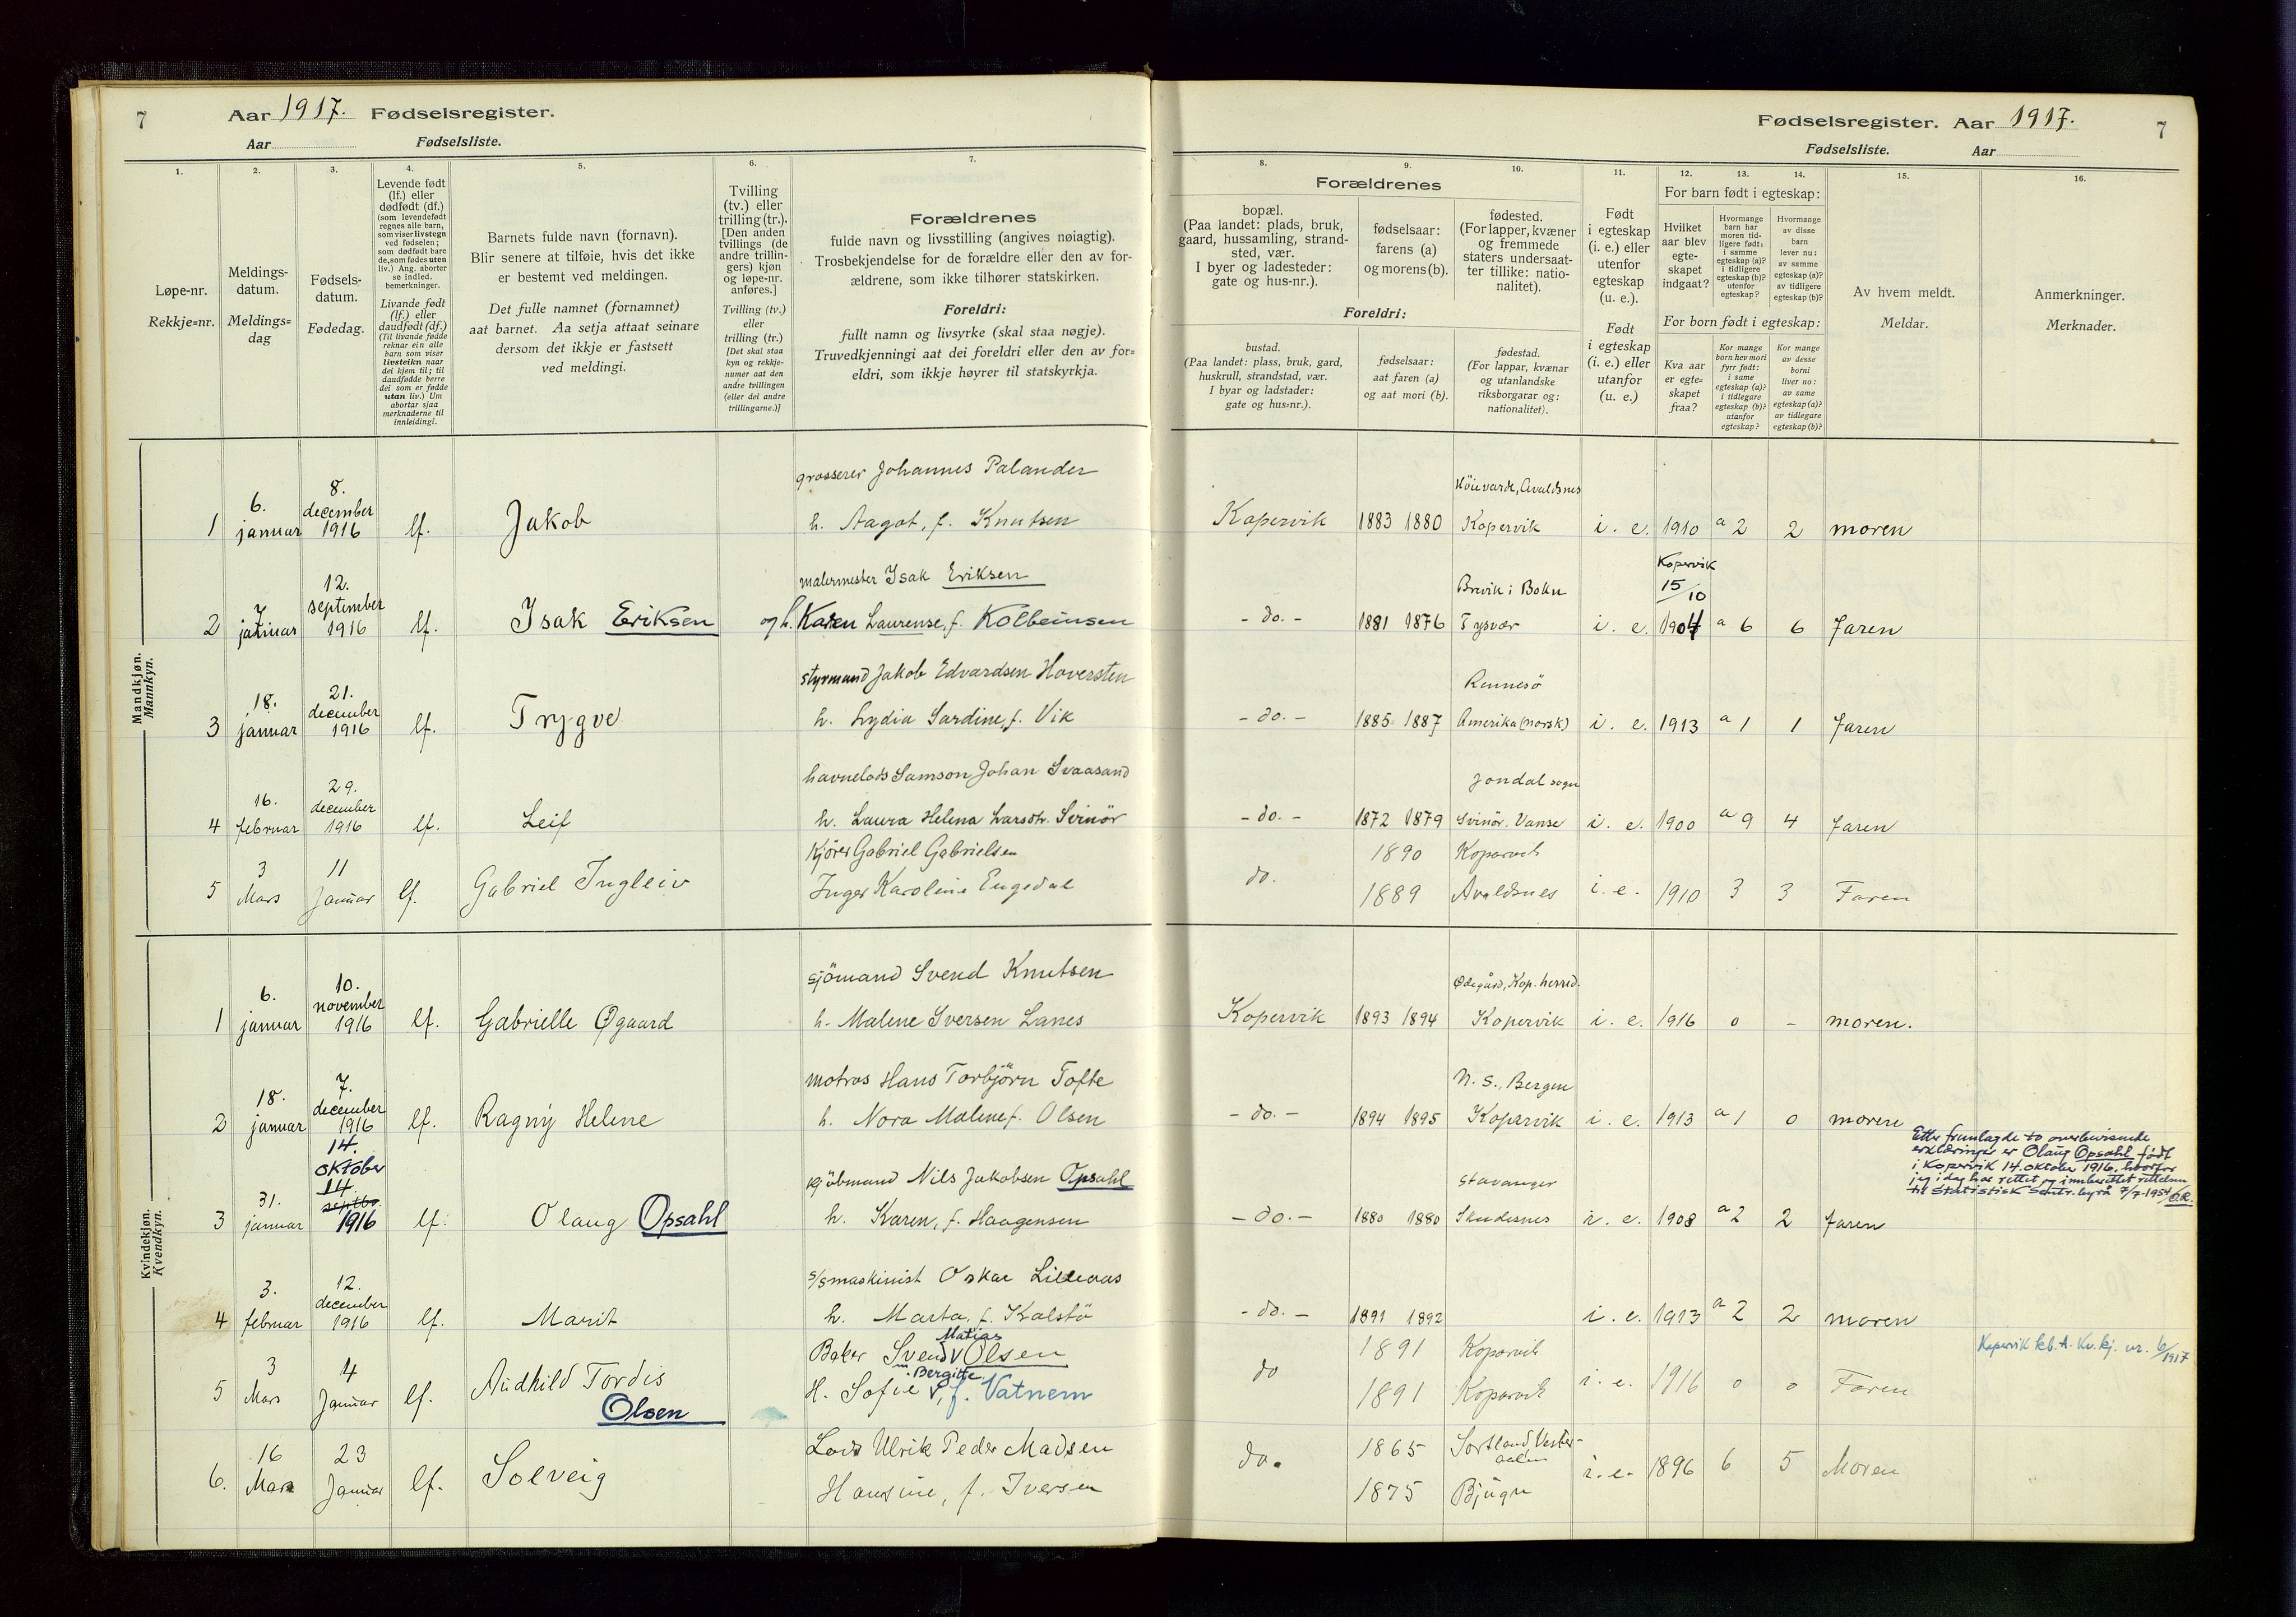 7
Aar 1917. Fødselsregister.
Aar Fødselsliste.
1.
2.
3.
4.
5.
6.
7.
Løpe-nr.
Rekkje=nr.
Meldings-
datum.
Meldings=
dag
Fødsels-
datum.
Fødedag.
Levende født
(lf.) eller
dødfødt (df.)
(som levendefødt
regnes alle barn,
som viser livstegn
ved fødselen;
som dødfødt bare
de, som fødes uten
liv.) Ang. aborter
se indled.
bemerkninger.
Livande født
(lf.) eller
daudfødt (df.)
(Til livande fødde
reknar ein alle
barn som viser
livsteikn naar
dei kjem til; til
daudfødde berre
dei som er fødde
utan liv.) Um
abortar sjaa
merknaderne til
innleidingi.
Barnets fulde navn (fornavn).
Blir senere at tilføie, hvis det ikke
er bestemt ved meldingen.
Det fulle namnet (fornamnet)
aat barnet. Aa setja attaat seinare
dersom det ikkje er fastsett
ved meldingi.
Tvilling
(tv.) eller
trilling (tr.).
[Den anden
tvillings (de
andre trillin-
gers) kjøn
og løpe-nr.
anføres.]
Tvilling (tv.)
eller
trilling (tr.)
[Det skal staa
kyn og rekkje-
numer aat den
andre tvillingen
(eller dei andre
trillingarne.)]
Forældrenes
fulde navn og livsstilling (angives nøiagtig).
Trosbekjendelse for de forældre eller den av for-
ældrene, som ikke tilhører statskirken.
Foreldri:
fullt namn og livsyrke (skal staa nøgje).
Truvedkjenningi aat dei foreldri eller den av for=
eldri, som ikkje høyrer til statskyrkja.
Mandkjøn.
Mannkyn.
1
6.
januar
8.
december
1916
lf.
Jakob
grosserer Johannes Palander
h. Aagot, f. Knutsen
2
7
januar
12.
september
1916
lf.
Isak Eriksen
malermester Isak Eriksen
og h. Karen Laurense, f. Kolbeinsen
3
18.
januar
21.
december
1916
lf.
Trygve
styrmand Jakob Edvardsen Hoversten
h. Lydia Sardine, f. Vik
4
16.
februar
29.
december
1916
lf.
Leif
havnelods Samson Johan Svaasand
h. Laura Helena Larsdtr. Svinör
5
3
Mars
11
Januar
lf.
Gabriel Ingleiv
Kjörer Gabriel Gabrielsen
Inger Karoline Engedal
Kvindekjøn.
Kvendkyn.
1
6.
januar
10.
november
1916
lf.
Gabrielle Øgaard
sjömand Svend Knutsen
h. Malene Iversen Lanes
2
18.
januar
7.
december
1916
lf.
Ragny Helene
motros Hans Torbjörn Tofte
h. Nora Malene f. Olsen
3
31.
januar
14.
oktober
14.
septbr.
1916
lf.
Olaug Opsahl
kjöbmand Nils Jakobsen Opsahl
h. Karen, f. Haagensen
4
3.
februar
12.
december
1916
lf.
Marit
s/s maskinist Oskar Lilleaas
h. Marta, f. Kalstö
5
3
Mars
4
Januar
lf.
Audhild Tordis
Olsen
Matias
Baker Svend v Olsen
Bergitte
H. Sofie v, f. Vatnem
6.
16
Mars
23
Januar
lf.
Solveig
Lods Ulrik Peder Madsen
Hansine, f. Iversen
Fødselsregister. Aar 1917.
7
Fødselsliste. Aar
8.
9.
10.
11.
12.
13.
14.
15.
16.
Forældrenes
bopæl.
(Paa landet: plads, bruk,
gaard, hussamling, strand-
sted, vær.
I byer og ladesteder:
gate og hus-nr.).
fødselsaar:
farens (a)
og morens (b).
fødested.
(For lapper, kvæner
og fremmede
staters undersaat-
ter tillike: natio-
nalitet).
Foreldri:
bustad.
(Paa landet: plass, bruk, gard,
huskrull, strandstad, vær.
I byar og ladstader:
gate og hus=nr.).
fødselsaar:
aat faren (a)
og aat mori (b).
fødestad.
(For lappar, kvænar
og utanlandske
riksborgarar og:
nationalitet).
Født
i egteskap
(i. e.) eller
utenfor
egteskap
(u. e.).
Født
i egteskap
(i. e.) eller
utanfor
(u. e.)
For barn født i egteskap:
Hvilket
aar blev
egte-
skapet
indgaat?
Hvormange
barn har
moren tid-
ligere født:
i samme
egteskap (a)?
i tidligere
egteskap (b)?
utenfor
egteskap?
Hvormange
av disse
barn
lever nu:
av samme
egteskap (a)?
av tidligere
egteskap (b)?
For born født i egteskap:
Kva aar
er egte=
skapet
fraa?
Kor mange
born hev mori
fyrr født:
i same
egteskap (a)?
i tidlegare
egteskap (b)?
utanfor
egteskap?
Kor mange
av desse
borni
liver no:
av same
egteskap (a)?
av tidlegare
egteskap (b)?
Av hvem meldt.
Meldar.
Anmerkninger.
Merknader.
Kopervik
1883 1880
Höievarde, Avaldsnes
Kopervik
i. e.
1910
a 2
2
moren
- do. -
1881 1876
Brevik i Bokn
Tysvær
i. e.
Kopervik
15/10
1904
a 6
6
faren
- do. -
1885 1887
Rennesö
Amerika (norsk)
i. e.
1913
a 1
1
faren
- do. -
1872 1879
Jondal sogn
Svinör. Vanse
i. e.
1900
a 9
4
faren
do.
1890
1889
Kopervik
Avaldsnes
i. e.
1910
3
3
Faren
Kopervik
1893 1894
Ødegård, Kop. herred.
Kopervik
i. e.
1916
0
-
moren.
- do. -
1894 1895
N. S., Bergen
Kopervik
i. e.
1913
a 1
0
moren
- do. -
1880 1880
Stavanger
Skudesnes
i. e.
1908
a 2
2
faren
Etter fremlagde to overbevisende
erklæringer er Olaug Opsahl født
i Kopervik 14. oktober 1916, hvorfor
jeg i dag har rettet og innberettet rettelsen
til Statistisk Sentr. byrå 7/7-1954
- do. -
1891 1892
i. e.
1913
a 2
2
moren
do
1891
1891
Kopervik
Kopervik
i. e.
1916
0
0
Faren
Kopervik kb. A. Kv. kj. nr. 6/1917
do.
1865
1875
Sortland, Vester-
aalen
Bjugn
i. e.
1896
6
5
Moren